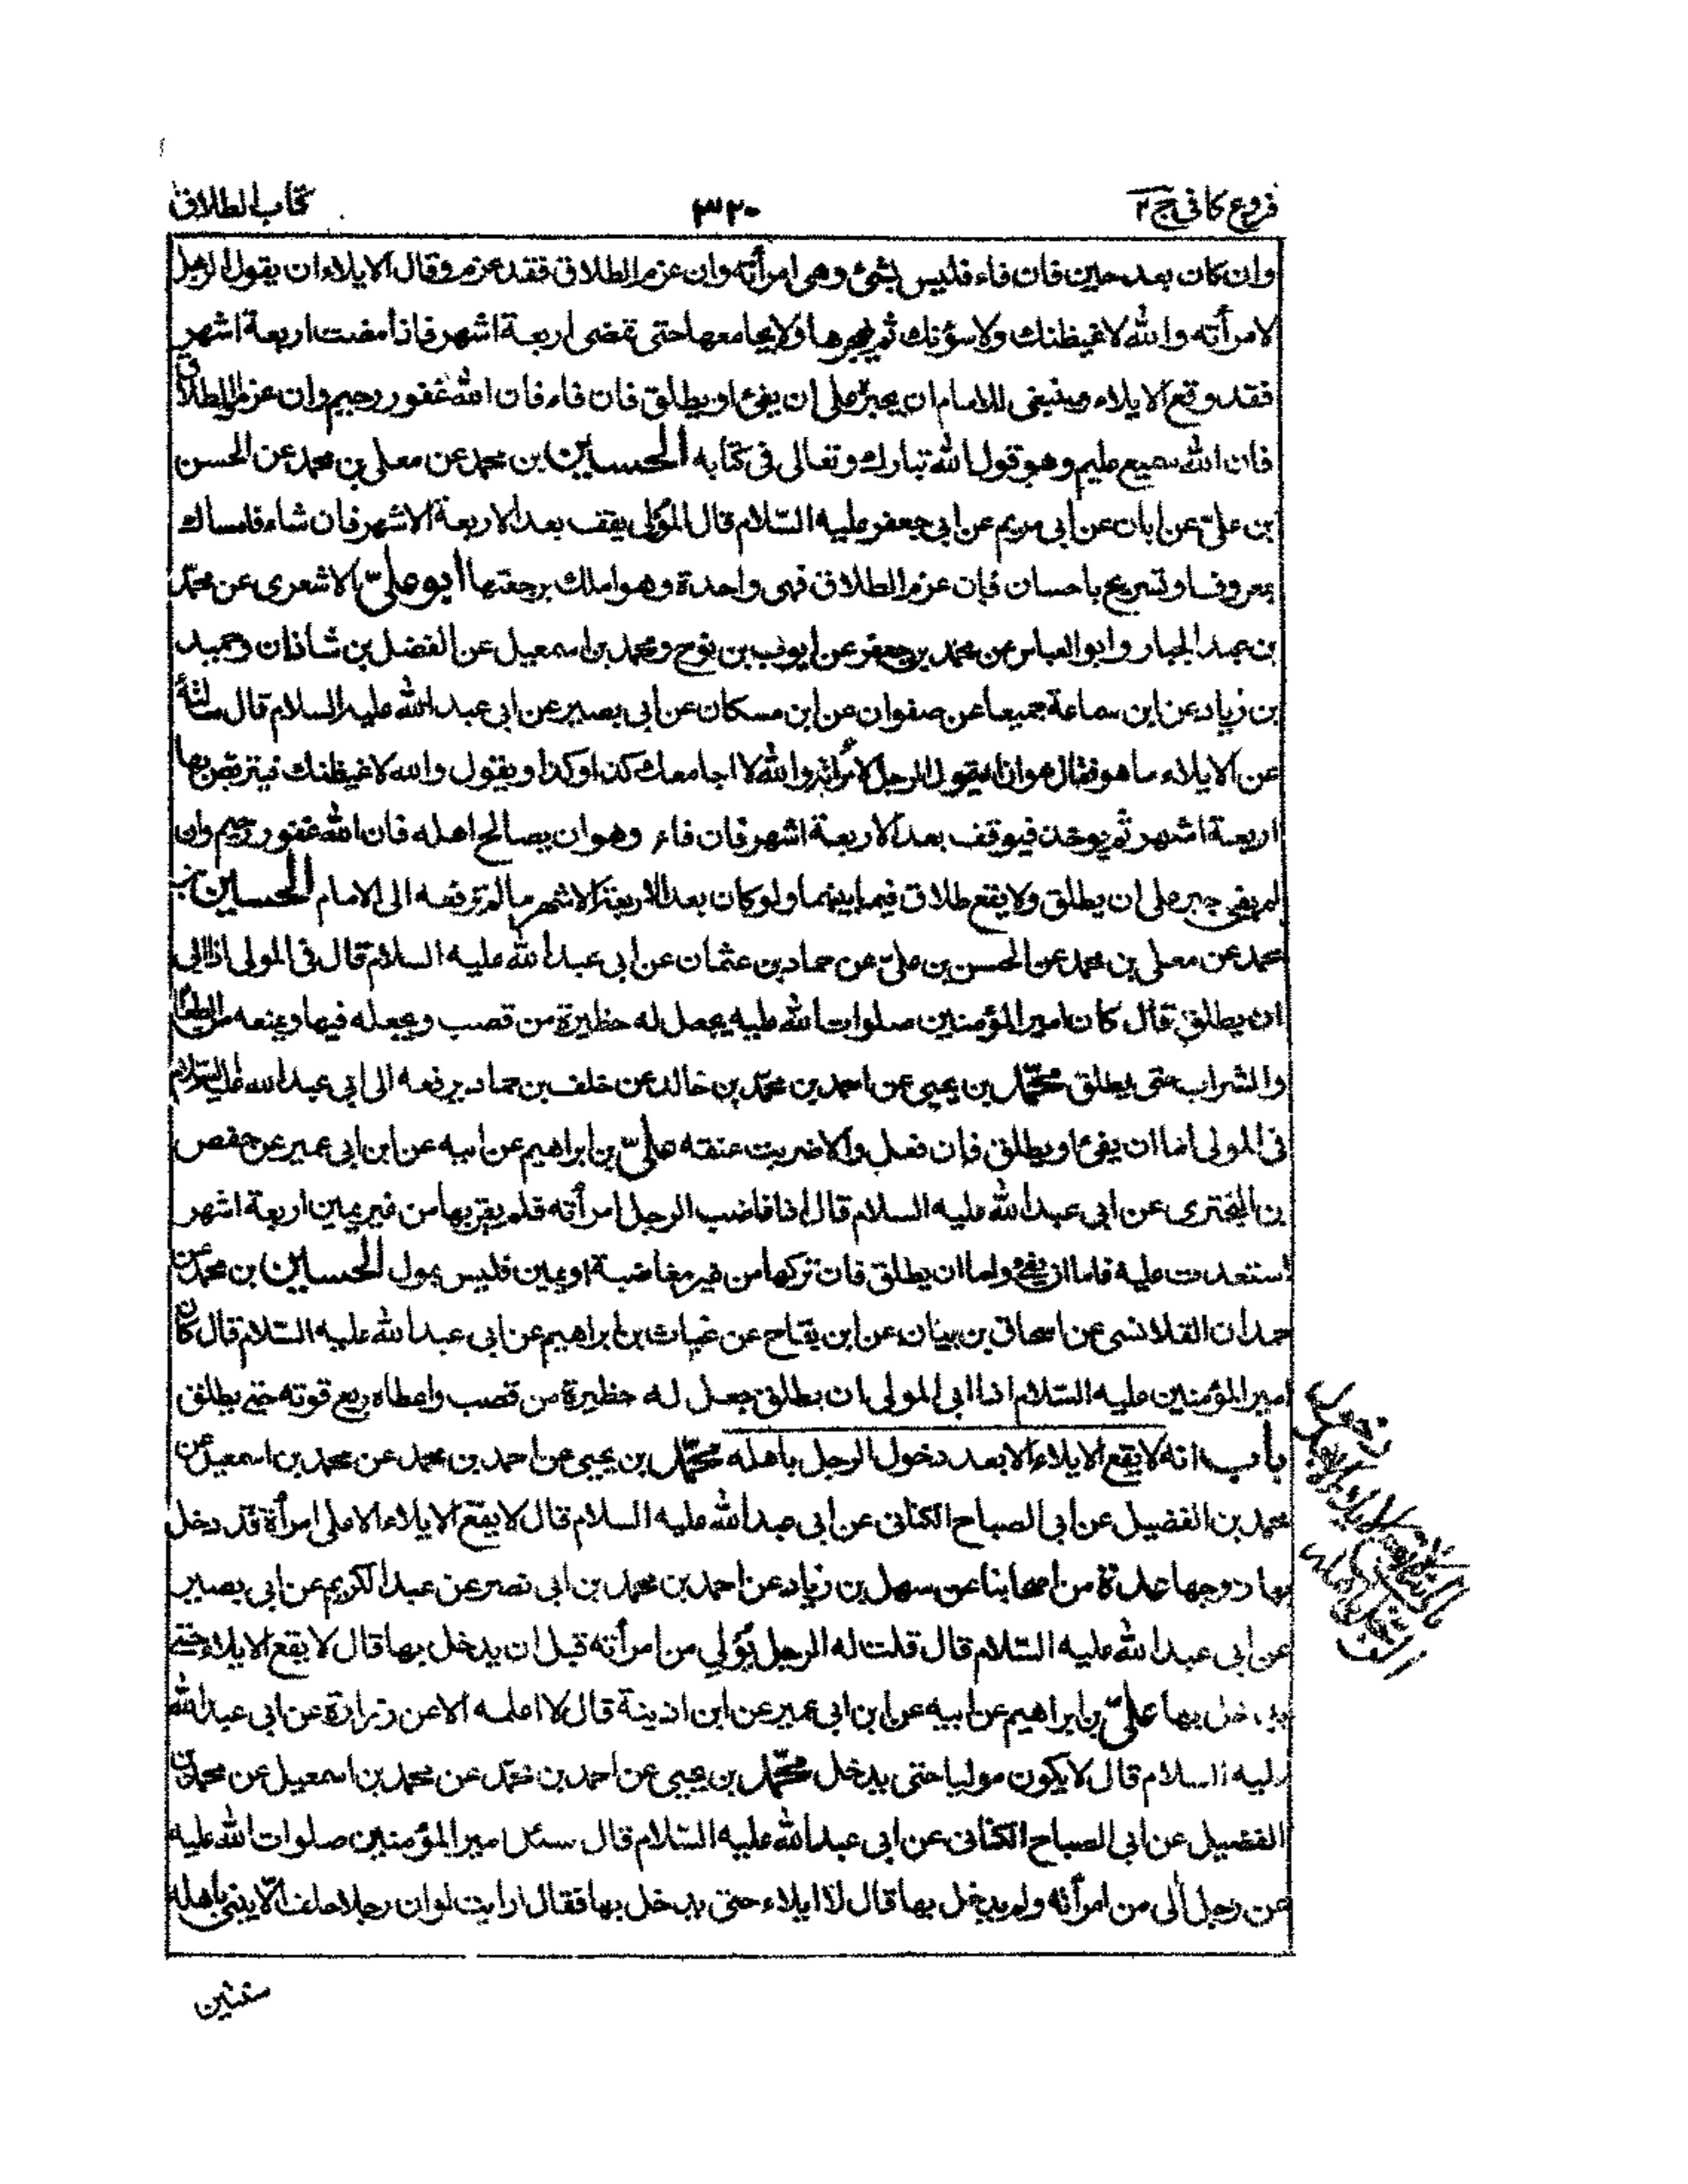 فروع كافى ج٢
٣٢٠
كتاب الطلاق
وان كان بعد حين فان فاء فليس بشئ وهى امرأته وان عزم الطلاق فقد عزم وقال الايلاء ان يقول الرجل
لامرأته والله لاغيظنك ولاسؤنك ثم يهجرها ولا يجامعها حتى تمضى اربعة اشهر فاذا مضت اربعة اشهر
فقد وقع الايلاء وينبغى للامام ان يجبره على ان يفئ او يطلق فان فاء فان الله غفور رحيم وان عزم الطلاق
فان الله سميع عليم وهو قول الله تبارك وتعالى فى كتابه الحسين بن محمد عن معلى بن محمد عن الحسن
بن علىّ عن ابان عن ابى مريم عن ابى جعفر عليه السّلام قال المؤلى يوقف بعد الاربعة الاشهر فان شاء فامساك
بمعروف او تسريح باحسان فإن عزم الطلاق فهى واحدة وهو املك برجعتها ابو علىّ الاشعرى عن محمّد
بن عبد الجبار وابو العباس عن محمّد بن جعفر عن ايوب بن نوح ومحمد بن اسمعيل عن الفضل بن شاذان وحميد
بن زياد عن ابن سماعة جميعا عن صفوان عن ابن مسكان عن ابى بصير عن ابى عبد الله عليه السلام قال سالته
عن الايلاء ما هو فقال هو ان يقول الرجل لامرأته والله لا اجامعك كذا وكذا ويقول والله لاغيظنك فيتربّص بها
اربعة اشهر ثم يوخذ فيوقف بعد الاربعة اشهر فان فاء وهو ان يصالح اهله فان الله غفور رحيم وان
لم يفئ جبر على ان يطلق ولا يقع طلاق فيما بينهما ولو كان بعد الاربعة الاشهر ما لم ترفعه الى الامام الحسين بن
محمد عن معلى بن محمد عن الحسن بن علىّ عن حماد بن عثمان عن ابى عبد الله عليه السلام قال فى المولى اذا ابى
ان يطلق قال كان امير المؤمنين صلوات الله عليه يجعل له حظيرة من قصب ويجعله فيها ويمنعه من الطعام
والشراب حتى يطلق محمّد بن يحيى عن احمد بن محمّد بن خالد عن خلف بن حماد يرفعه الى ابى عبد الله عليه السّلام
فى المولى اما ان يفئ او يطلق فان فعل والا ضربت عنقه علىّ بن ابراهيم عن ابيه عن ابن ابى عمير عن حفص
بن البخترى عن ابى عبد الله عليه السلام قال اذا غاضب الرجل امرأته فلم يقربها من غير يمين اربعة اشهر
استعدت عليه فاما ان يفئ واما ان يطلق فان تركها من غير مغاضبة او يمين فليس بمول الحسين بن محمد عن
حمدان القلانسى عن اسحاق بن بنان عن ابن بقاح عن غياث بن ابراهيم عن ابى عبد الله عليه السّلام قال كان
امير المؤمنين عليه السّلام اذا ابى المولى ان يطلق جعل له حظيرة من قصب واعطاه ربع قوته حتى يطلق
باب انه لا يقع الايلاء الا بعد دخول الرجل باهله محمّد بن يحيى عن احمد بن محمد عن محمد بن اسمعيل عن
محمد بن الفضيل عن ابى الصباح الكنانى عن ابى عبد الله عليه السلام قال لا يقع الايلاء الا على امرأة قد دخل
بها زوجها عدة من اصحابنا عن سهل بن زياد عن احمد بن محمد بن ابى نصر عن عبد الكريم عن ابى بصير
عن ابى عبد الله عليه السّلام قال قلت له الرجل يؤلى من امرأته قبل ان يدخل بها قال لا يقع الايلاء حتى
يدخل بها علىّ بن ابراهيم عن ابيه عن ابن ابى عمير عن ابن اذينة قال لا اعلمه الا عن زرارة عن ابى عبد الله
عليه السلام قال لا يكون موليا حتى يدخل محمّد بن يحيى عن احمد بن محمّد عن محمد بن اسمعيل عن محمد بن
الفضيل عن ابى الصباح الكنانى عن ابى عبد الله عليه السّلام قال سئل امير المؤمنين صلوات الله عليه
عن رجل آلى من امرأته ولم يدخل بها قال لا ايلاء حتى يدخل بها فقال ارايت لو ان رجلا حلف الّا يبنى باهله
سنتين